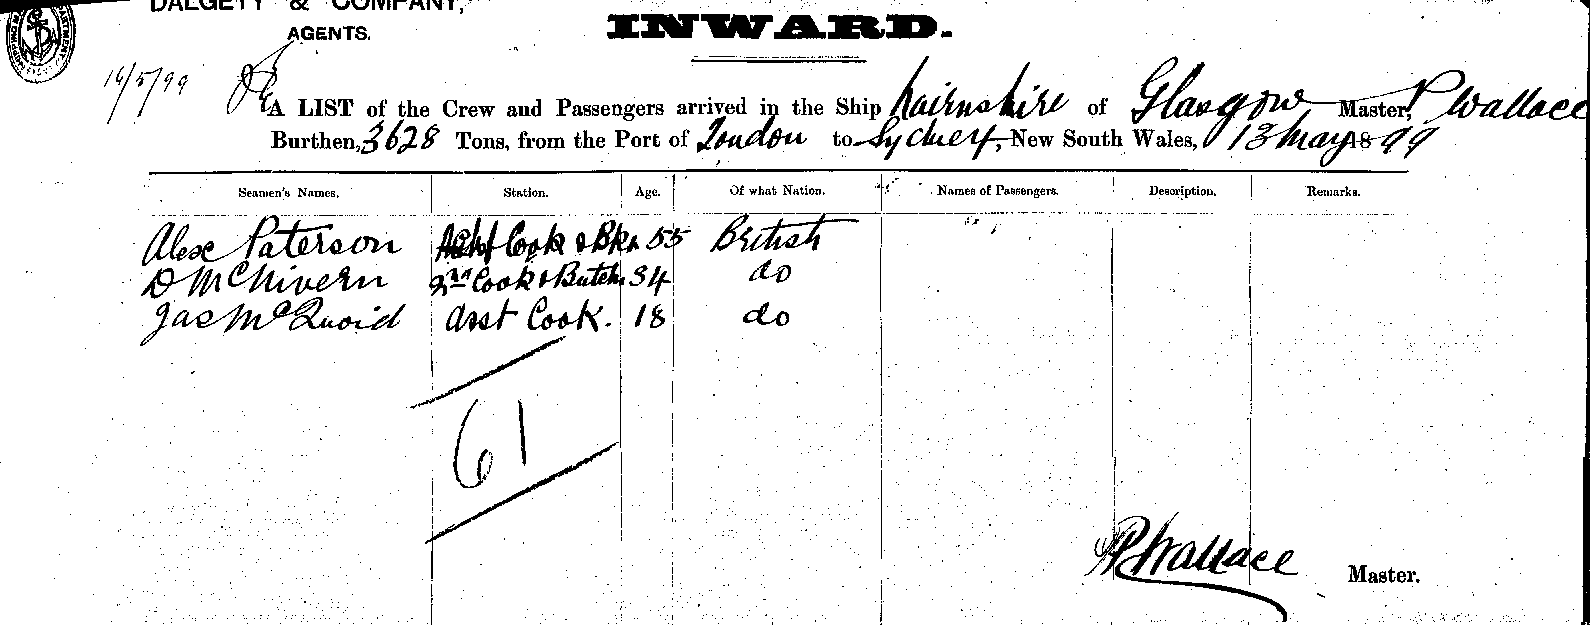 DALGETY & COMPANY,
AGENTS.
INWARD.
16/5/99
A LIST of the Crew and Passengers arrived in the Ship Nairnshire of Glasgow Master, P Wallace
Burthen, 3628 Tons, from the Port of London to Sydney, New South Wales, 13 May 1899
Seamen's Names. Station. Age. Of what Nation. Names of Passengers. Description. Remarks.
Alex Paterson Cook & Bkr 55 British
D McNivern 2nd Cook & Butch 34 do
Jas McQuoid Asst Cook. 18 do
61
P Wallace Master.